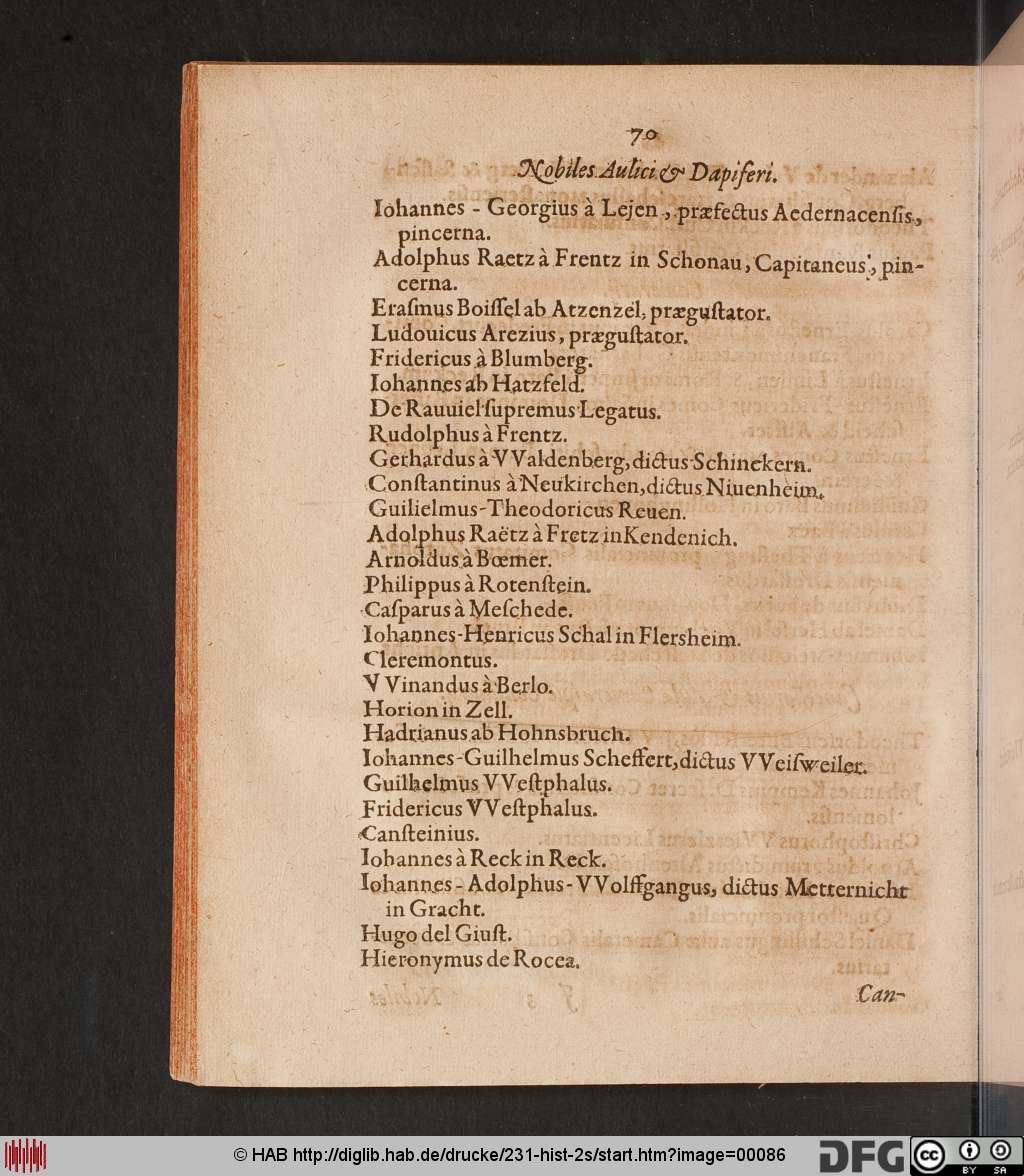 70
Nobiles Aulici & Dapiferi.
Iohannes - Georgius à Lejen, præfectus Aedernacensis,
pincerna.
Adolphus Raetz à Frentz in Schonau, Capitaneus, pin-
cerna.
Erasmus Boissel ab Atzenzel, prægustator.
Ludouicus Arezius, prægustator.
Fridericus à Blumberg.
Iohannes ab Hatzfeld.
De Rauuiel supremus Legatus.
Rudolphus à Frentz.
Gerhardus à VValdenberg, dictus Schinckern.
Constantinus à Neukirchen, dictus Niuenheim.
Guilielmus-Theodoricus Reuen.
Adolphus Raëtz à Fretz in Kendenich.
Arnoldus à Bœmer.
Philippus à Rotenstein.
Casparus à Meschede.
Iohannes-Henricus Schal in Flersheim.
Cleremontus.
VVinandus à Berlo.
Horion in Zell.
Hadrianus ab Hohnsbruch.
Iohannes-Guilhelmus Scheffert, dictus VVeisweiler.
Guilhelmus VVestphalus.
Fridericus VVestphalus.
Cansteinius.
Iohannes à Reck in Reck.
Iohannes - Adolphus - VVolffgangus, dictus Metternicht
in Gracht.
Hugo del Giust.
Hieronymus de Rocca.
Can-
© HAB http://diglib.hab.de/drucke/231-hist-2s/start.htm?image=00086
DFG
cc
BY SA